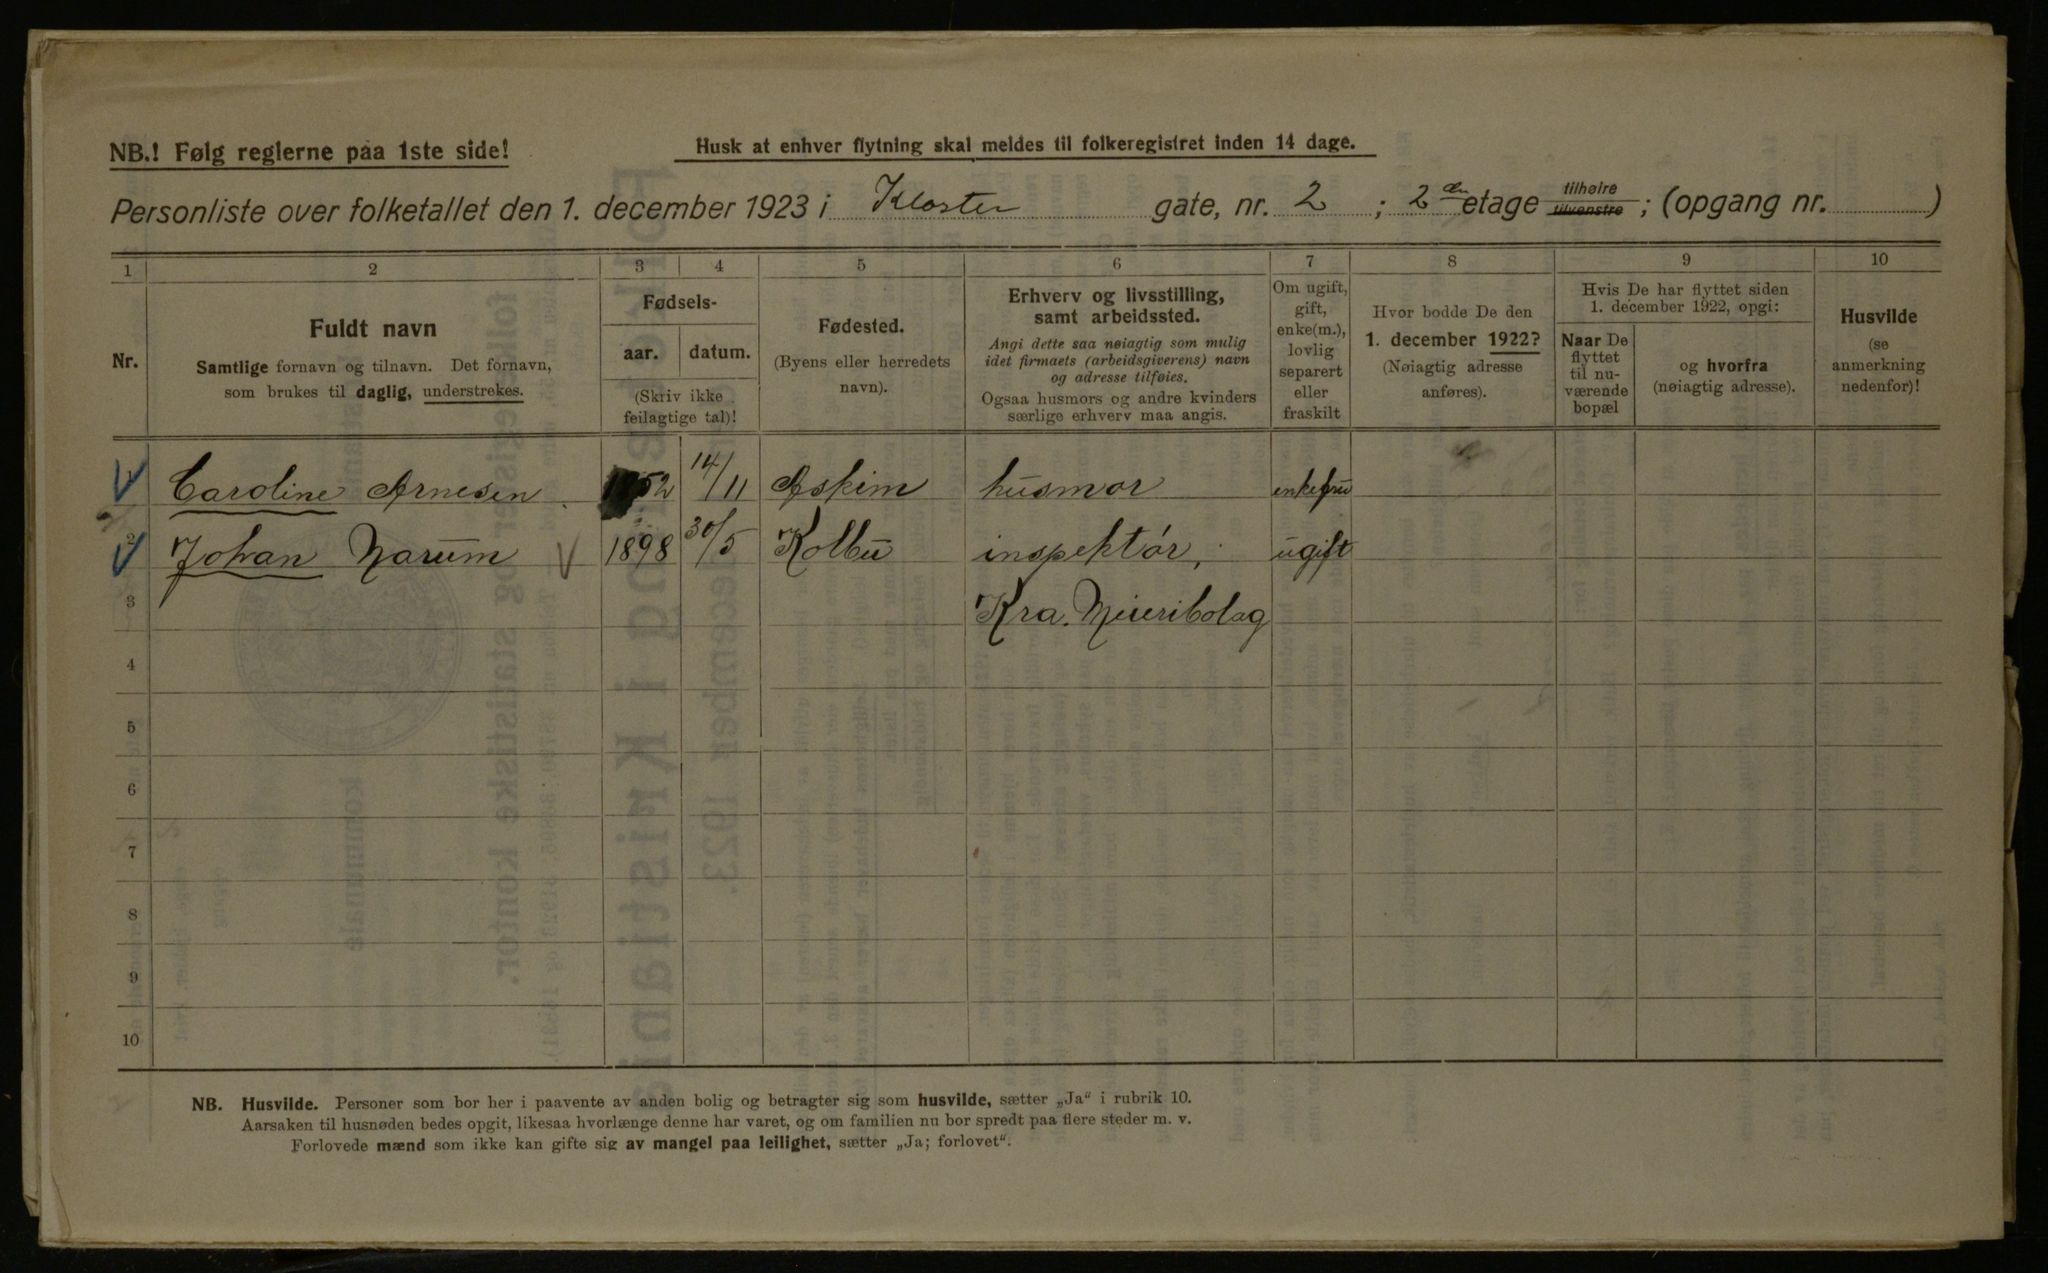 NB.! Følg reglerne paa 1ste side!
Husk at enhver flytning skal meldes til folkeregistret inden 14 dage.
Personliste over folketallet den 1. december 1923 i Kloster gate, nr. 2 ; 2 den etage tilhøire tilvenstre ; (opgang nr. )
1 2 3 4 5 6 7 8 9 10
Nr.
Fuldt navn
Samtlige fornavn og tilnavn. Det fornavn,
som brukes til daglig, understrekes.
Fødsels-
aar. datum.
(Skriv ikke
feilagtige tal)!
Fødested.
(Byens eller herredets
navn).
Erhverv og livsstilling,
samt arbeidssted.
Angi dette saa nøiagtig som mulig
idet firmaets (arbeidsgiverens) navn
og adresse tilføies.
Ogsaa husmors og andre kvinders
særlige erhverv maa angis.
Om ugift,
gift,
enke(m.),
lovlig
separert
eller
fraskilt
Hvor bodde De den
1. december 1922?
(Nøiagtig adresse
anføres).
Hvis De har flyttet siden
1. december 1922, opgi:
Naar De
flyttet
til nu-
værende
bopæl
og hvorfra
(nøiagtig adresse).
Husvilde
(se
anmerkning
nedenfor)!
1 Caroline Arnesen 1852 14/11 Askim husmor enkefru
2 Johan Narum 1898 30/5 Kolbu inspektør, ugift
3 Kra. Meieribolag
4
5
6
7
8
9
10
NB. Husvilde. Personer som bor her i paavente av anden bolig og betragter sig som husvilde, sætter „Ja" i rubrik 10.
Aarsaken til husnøden bedes opgit, likesaa hvorlænge denne har varet, og om familien nu bor spredt paa flere steder m. v.
Forlovede mænd som ikke kan gifte sig av mangel paa leilighet, sætter „Ja; forlovet".